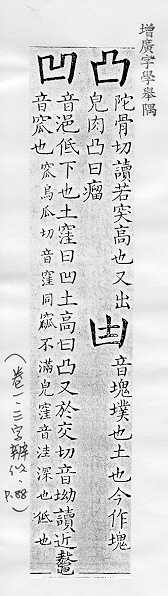 增廣字學舉隅
凸 陀骨切讀若突高也又出
皃肉凸曰瘤
凷 音塊墣也土也今作塊
凹 音浥低下也土窪曰凹土高曰凸又於交切音坳讀近鼇
音窊也 窊烏瓜切音窪同 不滿皃窪音洼深也低也
（卷一·三字辨似·P.88）